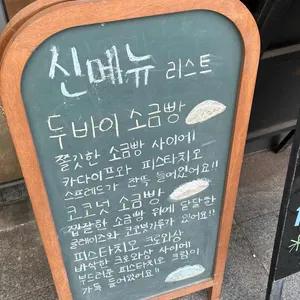 신메뉴 리스트
두바이 소금빵
쫄깃한 소금빵 사이에
카다이프와 피스타치오
스프레드가 잔뜩 들어있어요!!
코코넛 소금빵
짭짤한 소금빵 위에 달달한
글레이즈와 코코넛가루가 있어요!!
피스타치오 크로와상
바삭한 크로와상 사이에
부드러운 피스타치오 크림이
가득 들어있어요!!